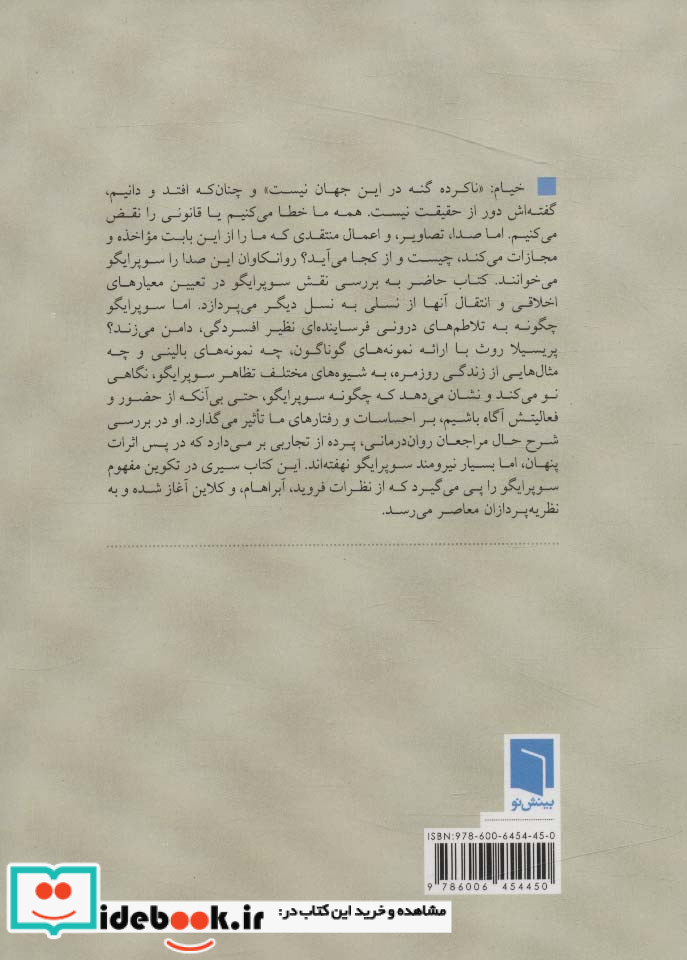 خیام: «ناکرده گنه در این جهان نیست» و چنان‌که افتد و دانیم،
گفته‌اش دور از حقیقت نیست. همه ما خطا می‌کنیم یا قانونی را نقض
می‌کنیم. اما صدا، تصاویر، و اعمال منتقدی که ما را از این بابت مؤاخذه و
مجازات می‌کند، چیست و از کجا می‌آید؟ روانکاوان این صدا را سوپرایگو
می‌خوانند. کتاب حاضر به بررسی نقش سوپرایگو در تعیین معیارهای
اخلاقی و انتقال آنها از نسلی به نسل دیگر می‌پردازد. اما سوپرایگو
چگونه به تلاطم‌های درونی فرساینده‌ای نظیر افسردگی، دامن می‌زند؟
پریسیلا روث با ارائه نمونه‌های گوناگون، چه نمونه‌های بالینی و چه
مثال‌هایی از زندگی روزمره، به شیوه‌های مختلف تظاهر سوپرایگو، نگاهی
نو می‌کند و نشان می‌دهد که چگونه سوپرایگو، حتی بی‌آنکه از حضور و
فعالیتش آگاه باشیم، بر احساسات و رفتارهای ما تأثیر می‌گذارد. او در بررسی
شرح حال مراجعان روان‌درمانی، پرده از تجاربی بر می‌دارد که در پس اثرات
پنهان، اما بسیار نیرومند سوپرایگو نهفته‌اند. این کتاب سیری در تکوین مفهوم
سوپرایگو را پی می‌گیرد که از نظرات فروید، آبراهام، و کلاین آغاز شده و به
نظریه‌پردازان معاصر می‌رسد.
بینش‌نو
ISBN:978-600-6454-45-0
9 786006 454450
مشاهده و خرید این کتاب در:
idebook.ir